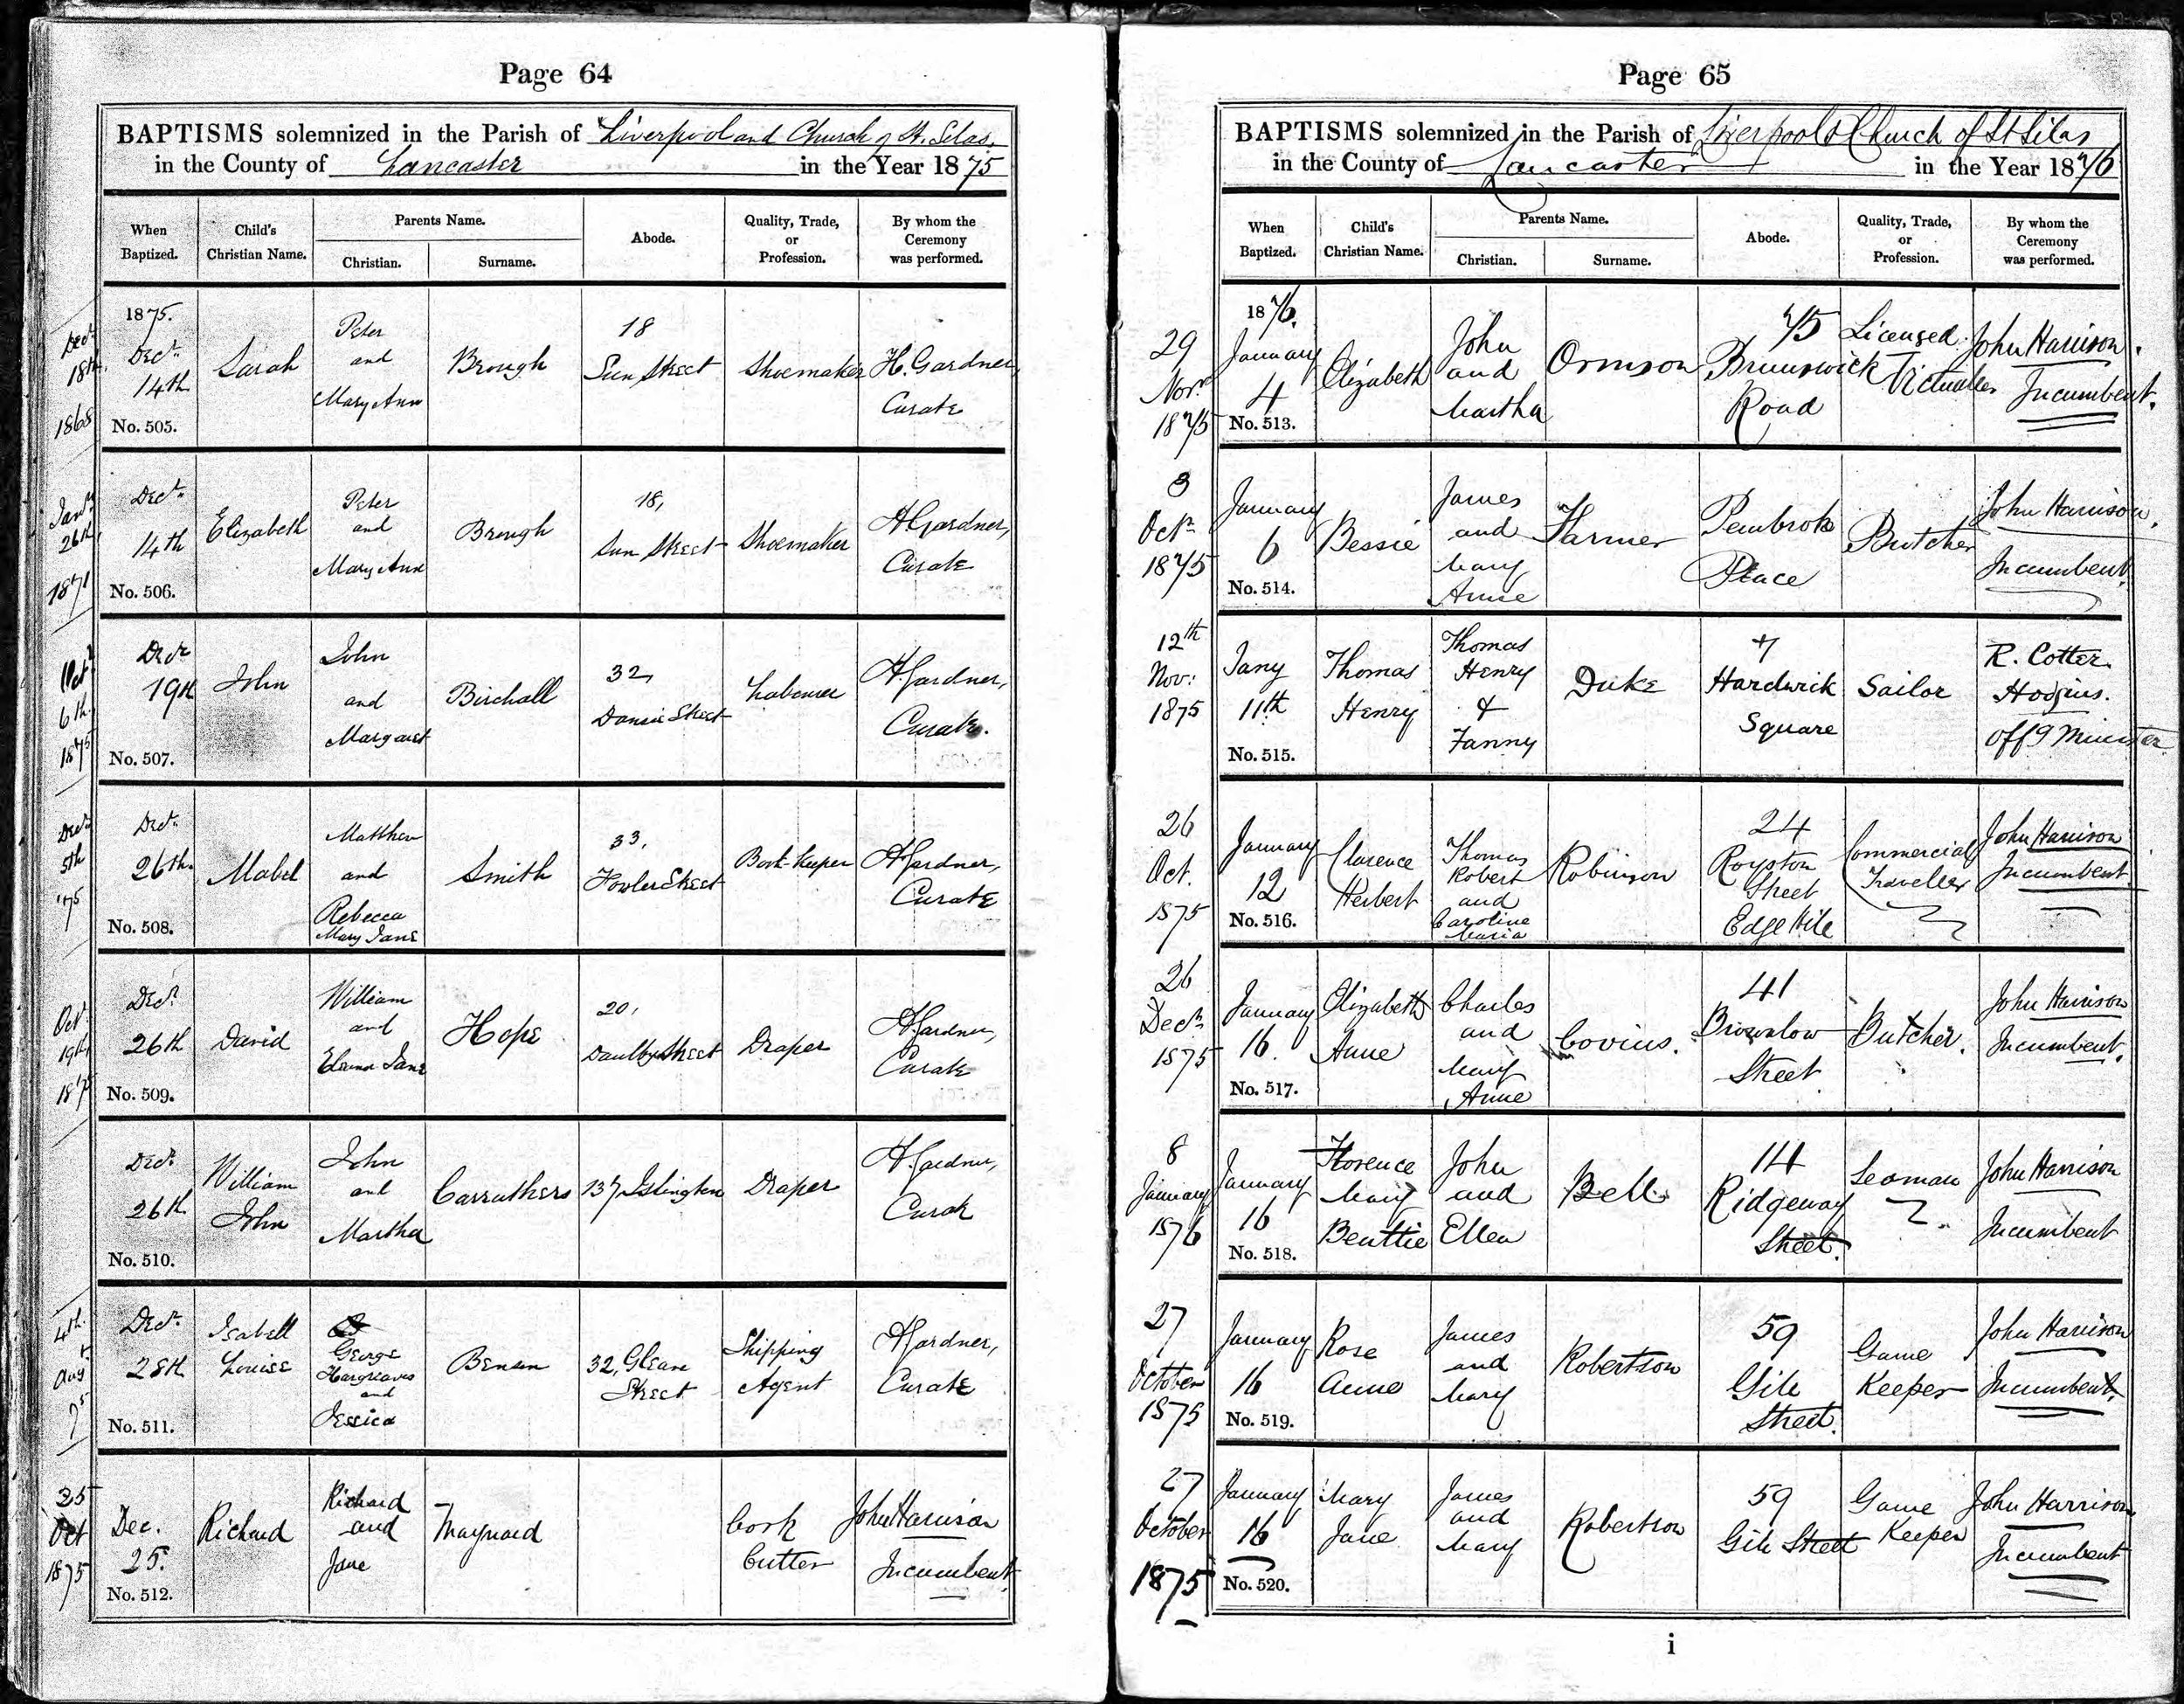 Page 64
BAPTISMS solemnized in the Parish of Liverpool and Church of St. Silas.
in the County of Lancaster in the Year 1875
When Baptized.
Child's Christian Name.
Parents Name.
Christian.
Surname.
Abode.
Quality, Trade, or Profession.
By whom the Ceremony was performed.
Decr. 18th. 1868
1875. Decr. 14th
No. 505.
Sarah
Peter and Mary Ann
Brough
18 Sun Street
Shoemaker
H. Gardner, Curate
Jany 26th, 1871
Decr. 14th
No. 506.
Elizabeth
Peter and Mary Ann
Brough
18, Sun Street
Shoemaker
H Gardner, Curate
Octr 6th. 1875
Decr 19th
No. 507.
John
John and Margaret
Birchall
32, Dansie Street
Labourer
H Gardner, Curate.
Decr 5th '75
Decr. 26th.
No. 508.
Mabel
Matthew and Rebecca Mary Jane
Smith
33, Fowler Street
Book-keeper
H Gardner, Curate
Oct 19th, 1875
Decr 26th
No. 509.
David
William and Eleanor Jane
Hope
20, Daulby Street
Draper
H Gardner, Curate
Decr. 26th
No. 510.
William John
John and Martha
Carruthers
137 Islington
Draper
H. Gardner, Curate
4th. Aug 75
Decr. 28th
No. 511.
Isabell Louise
George Hargreaves and Jessica
Benson
32, Gleave Street
Shipping Agent
H Gardner, Curate
25 Oct 1875
Dec. 25.
No. 512.
Richard
Richard and Jane
Maynard
Cork Cutter
John Harrison Incumbent
Page 65
BAPTISMS solemnized in the Parish of Liverpool & Church of St Silas
in the County of Lancaster in the Year 1876
When Baptized.
Child's Christian Name.
Parents Name.
Christian.
Surname.
Abode.
Quality, Trade, or Profession.
By whom the Ceremony was performed.
29 Novr 1875
1876. January 4
No. 513.
Elizabeth
John and Martha
Ormson
75 Brunswick Road
Licensed Victualler
John Harrison. Incumbent.
3 Octr 1875
January 6
No. 514.
Bessie
James and Mary Anne
Farmer
Pembroke Place
Butcher
John Harrison, Incumbent.
12th Nov: 1875
Jany 11th
No. 515.
Thomas Henry
Thomas Henry & Fanny
Duke
7 Hardwick Square
Sailor
R. Cotter Hodgins. Offg Minister.
26 Oct. 1875
January 12
No. 516.
Clarence Herbert
Thomas Robert and Caroline Maria
Robinson
24 Royston Street Edge Hill
Commercial Traveller
John Harrison Incumbent
26 Decr 1875
January 16.
No. 517.
Elizabeth Anne
Charles and Mary Anne
Covins.
41 Brownlow Street
Butcher.
John Harrison Incumbent.
8 January 1876
January 16
No. 518.
Florence Mary Beattie
John and Ellen
Bell
114 Ridgeway Street.
Seaman
John Harrison Incumbent
27 October 1875
January 16
No. 519.
Rose Anne
James and Mary
Robertson
59 Gill Street.
Game Keeper
John Harrison Incumbent.
27 October 1875
January 16
No. 520.
Mary Jane
James and Mary
Robertson
59 Gill Street
Game Keeper
John Harrison Incumbent
i